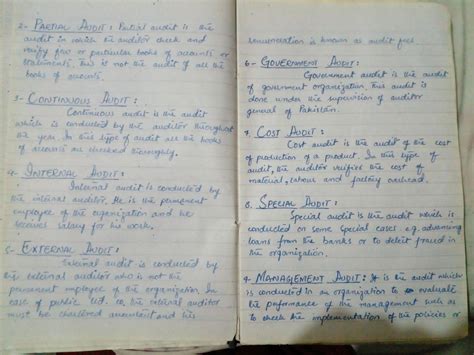 2- PARTIAL AUDIT: Partial audit is the
audit in which the auditor check and
verify few or particular books of accounts or
statements. This is not the audit of all the
books of accounts.
3- CONTINUOUS AUDIT:
Continuous audit is the audit
which is conducted by the auditor throughout
the year. In this type of audit all the books
of accounts are checked thoroughly.
4- INTERNAL AUDIT:
Internal audit is conducted by
the internal auditor. He is the permanent
employee of the organization and he
receives salary for his work.
5- EXTERNAL AUDIT:
External audit is conducted by
the external auditor who is not the
permanent employee of the organization. In
case of public ltd. co, the external auditor
must be chartered accountant and his
remuneration is known as audit fees.
6- GOVERNMENT AUDIT:
Government audit is the audit
of government organization. This audit is
done under the supervision of auditor
general of Pakistan.
7. COST AUDIT:
Cost audit is the audit of the cost
of production of a product. In this type of
audit, the auditor verifies the cost of
material, labour and factory overhead.
8. SPECIAL AUDIT:
Special audit is the audit which is
conducted on some special cases e.g. advancing
loans from the banks or to detect fraud in
the organization.
9- MANAGEMENT AUDIT: It is the audit which
is conducted in an organization to evaluate
the performance of the management well as
to check the implementation of the policies or